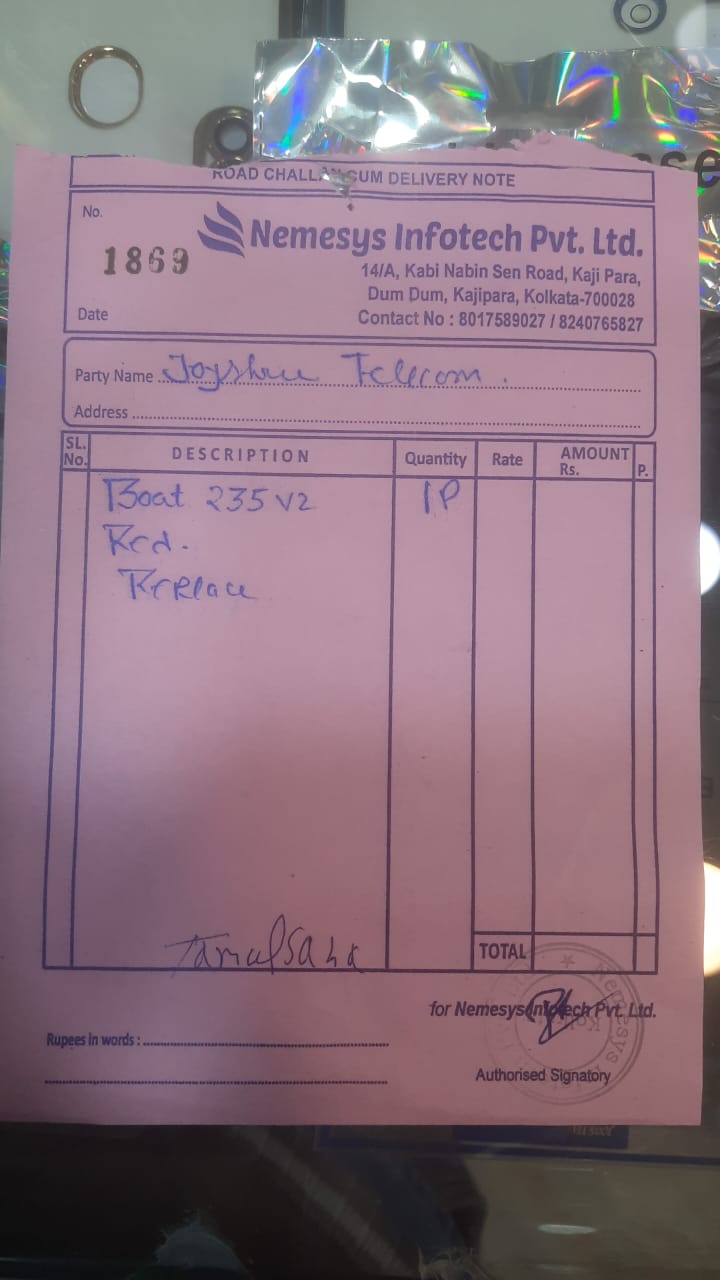 ROAD CHALLAN CUM DELIVERY NOTE
No.
1869
Nemesys Infotech Pvt. Ltd.
14/A, Kabi Nabin Sen Road, Kaji Para,
Dum Dum, Kajipara, Kolkata-700028
Contact No : 8017589027 / 8240765827
Date
Party Name Joyshree Telecom.
Address
SL. No. DESCRIPTION Quantity Rate AMOUNT Rs. P.
Boat 235 V2 1P
Red.
Replace
Tamal Saha
TOTAL
for Nemesys Infotech Pvt. Ltd.
Rupees in words :
Authorised Signatory